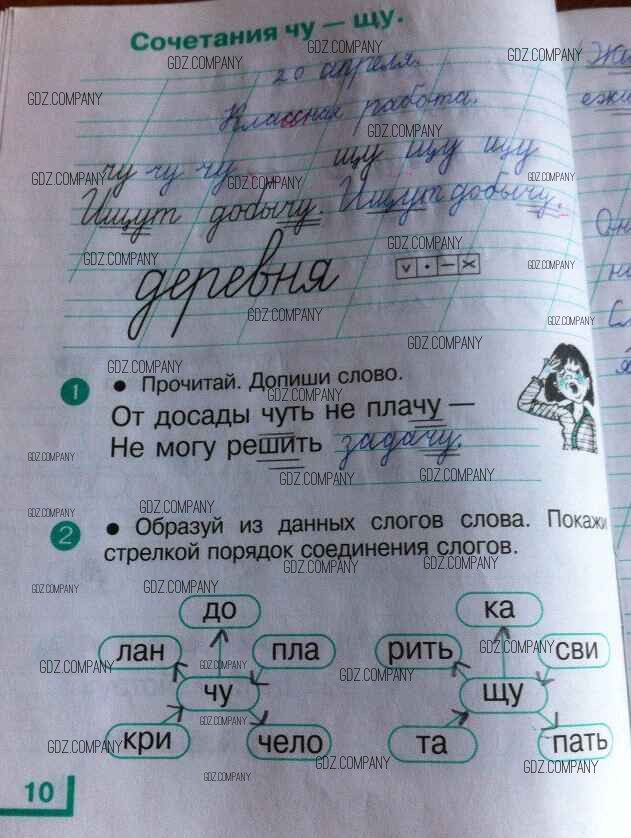 Сочетания чу — щу.
20 апреля.
Классная работа.
чу чу чу щу щу щу
Ищут добычу. Ищут добычу.
деревня
1 • Прочитай. Допиши слово.
От досады чуть не плачу —
Не могу решить задачу.
2 • Образуй из данных слогов слова. Покажи
стрелкой порядок соединения слогов.
до ка
лан пла рить сви
чу щу
кри чело та пать
10
GDZ.COMPANY